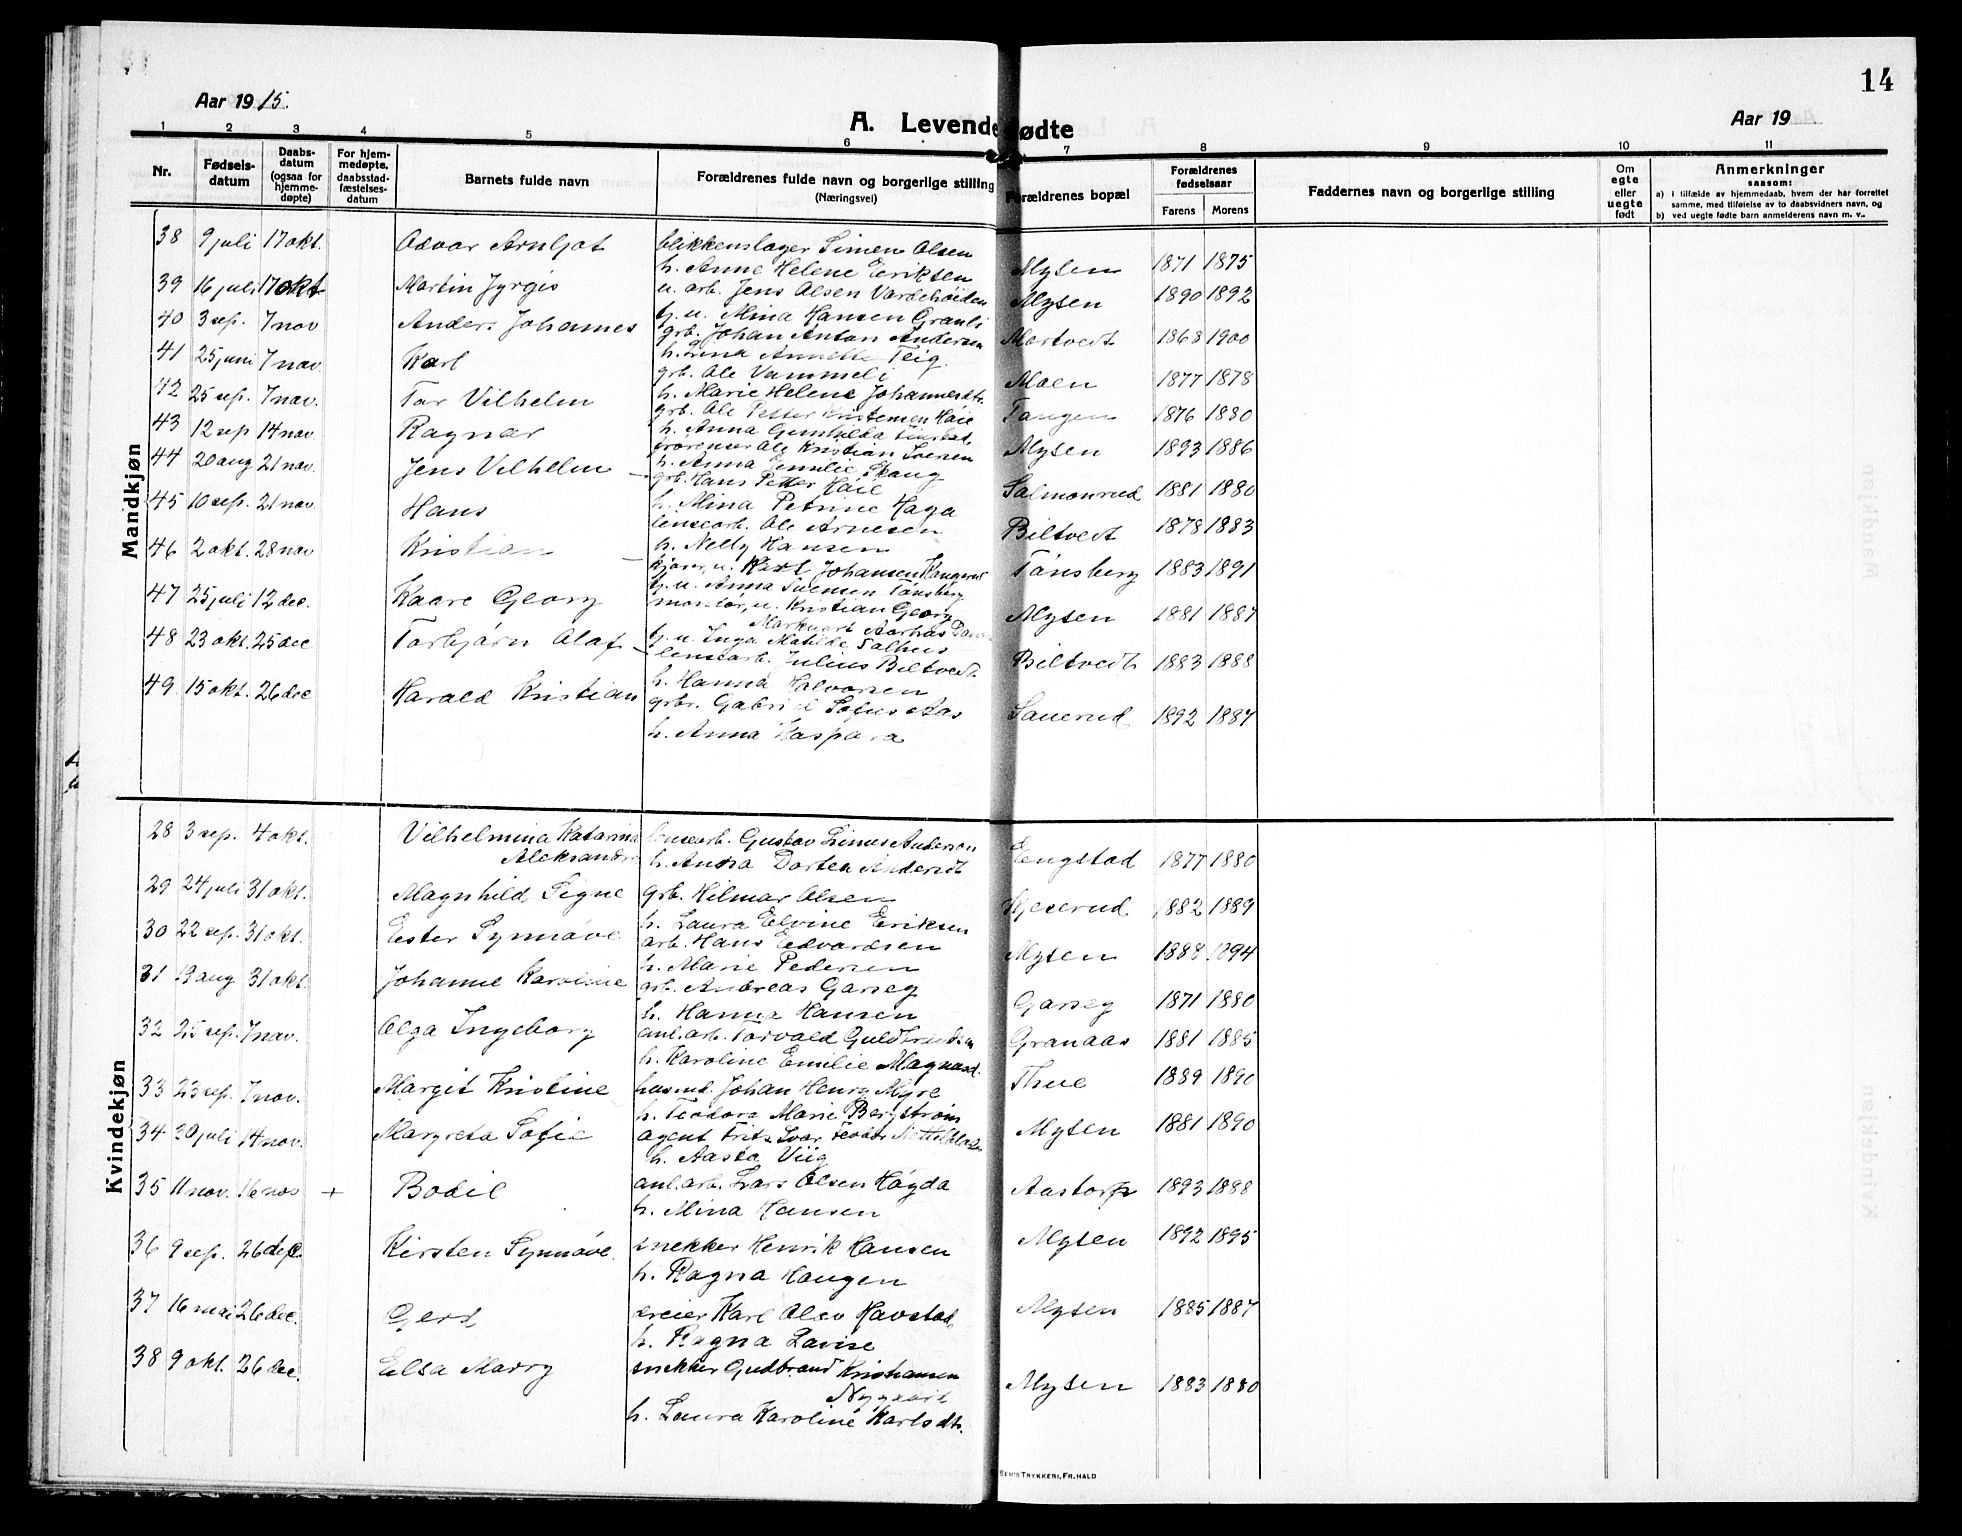 14
Aar 1915.
A. Levendefødte
Aar 19
1 2 3 4 5 6 7 8 9 10 11
Nr.
Fødselsdatum
Daabsdatum (ogsaa for hjemmedøpte)
For hjemmedøpte, daabsstadfæstelsesdatum
Barnets fulde navn
Forældrenes fulde navn og borgerlige stilling (Næringsvei)
Forældrenes bopæl
Forældrenes fødselsaar
Farens Morens
Faddernes navn og borgerlige stilling
Om egte eller uegte født
Anmerkninger
saasom:
a) i tilfælde av hjemmedaab, hvem der har forrettet samme, med tilføielse av to daabsvidners navn, og
b) ved uegte fødte barn anmelderens navn m. v..
Mandkjøn
38 9 juli 17 okt. Odvar Arnljot blikkenslager Simen Olsen
h. Anne Helene Eriksen Mysen 1871 1875
39 16 juli 17 okt Martin Jyrgis u. arb. Jens Olsen Vardehøiden
tj. u. Mina Hansen Granli Mysen 1890 1892
40 3 sep. 7 nov Anders Johannes grb. Johan Anton Andersen
h. Lina Annette Teig Mortvedt 1868 1900
41 25 juni 7 nov. Karl grb. Ole Vammeli
h. Marie Helene Johannesdtr. Moen 1877 1878
42 25 sep. 7 nov. Tor Vilhelm grb. Ole Petter Kristensen Høie
h. Anna Gunhilda Tangen 1876 1880
43 12 sep 14 nov Ragnar Ole Kristian
h. Anna Emilie Skaug Mysen 1893 1886
44 20 aug 21 nov. Jens Vilhelm grb. Hans Petter Høie
h. Mina Petrine Haga Salmonrud 1881 1880
45 10 sep. 21 nov Hans lensearb. Ole Arnesen
h. Nelly Hansen Biltvedt 1878 1883
46 2 okt. 28 nov Kristian Karl Johansen
tj. u. Anna Tønsberg Tønsberg 1883 1891
47 25 juli 12 dec. Kaare Georg montør, u. Kristian Georg
Aarhus
tj. u. Inga Matilde Mysen 1881 1887
48 23 okt. 25 dec Torbjørn Olaf lensearb. Julius Biltvedt
h. Hanna Halvorsen Biltvedt 1883 1888
49 15 okt. 26 dec Harald Kristian grbr. Gabriel Sofus Aas
h. Anna Kaspara Sauerud 1892 1887
Kvindekjøn
28 3 sep. 4 okt. Vilhelmina Katarina lensearb. Gustav Linus Anderson
Aleksandra h. Anna Dortea Andersdt Engstad 1877 1880
29 24 juli 31 okt. Magnhild Signe grb. Hilmar Olsen
h. Laura Elvine Eriksen Kjeserud 1882 1889
30 22 sep. 31 okt. Ester Synnøve arb. Hans Edvardsen
h. Marie Pedersen Mysen 1888 1894
31 19 aug 31 okt. Johanne Karoline arb. Andreas Garseg
h. Hanna Hansen Garseg 1871 1880
32 25 sep. 7 nov. Olga Ingeborg anl.arb. Torvald Guldbrandsen
h. Karoline Emilie Granaas 1881 1885
33 23 sep. 7 nov. Margit Kristine husmd. Johan Henry Myre
h. Teodora Marie Bergstrøm Thue 1889 1890
34 30 juli 14 nov. Margreta Sofie agent Fritz Ivar Teodor
h. Aasta Viig Mysen 1881 1890
35 11 nov. 16 nov + Bodil anl.arb. Lars Olsen Høgda
h. Mina Hansen Aastorp 1893 1888
36 9 sep. 26 dec. Kirsten Synnøve. snekker Henrik Hansen
h. Ragna Haugen Mysen 1892 1895
37 16 mai 26 dec. Gerd dreier Karl Olav Havstad
h. Ragna Lovise Mysen 1885 1887
38 9 okt. 26 dec. Elsa Marry snekker Gudbrand Kristiansen
Nygaard
h. Laura Karoline Karlsdtr. Mysen 1883 1880
SEM'S TRYKKERI, FR.HALD